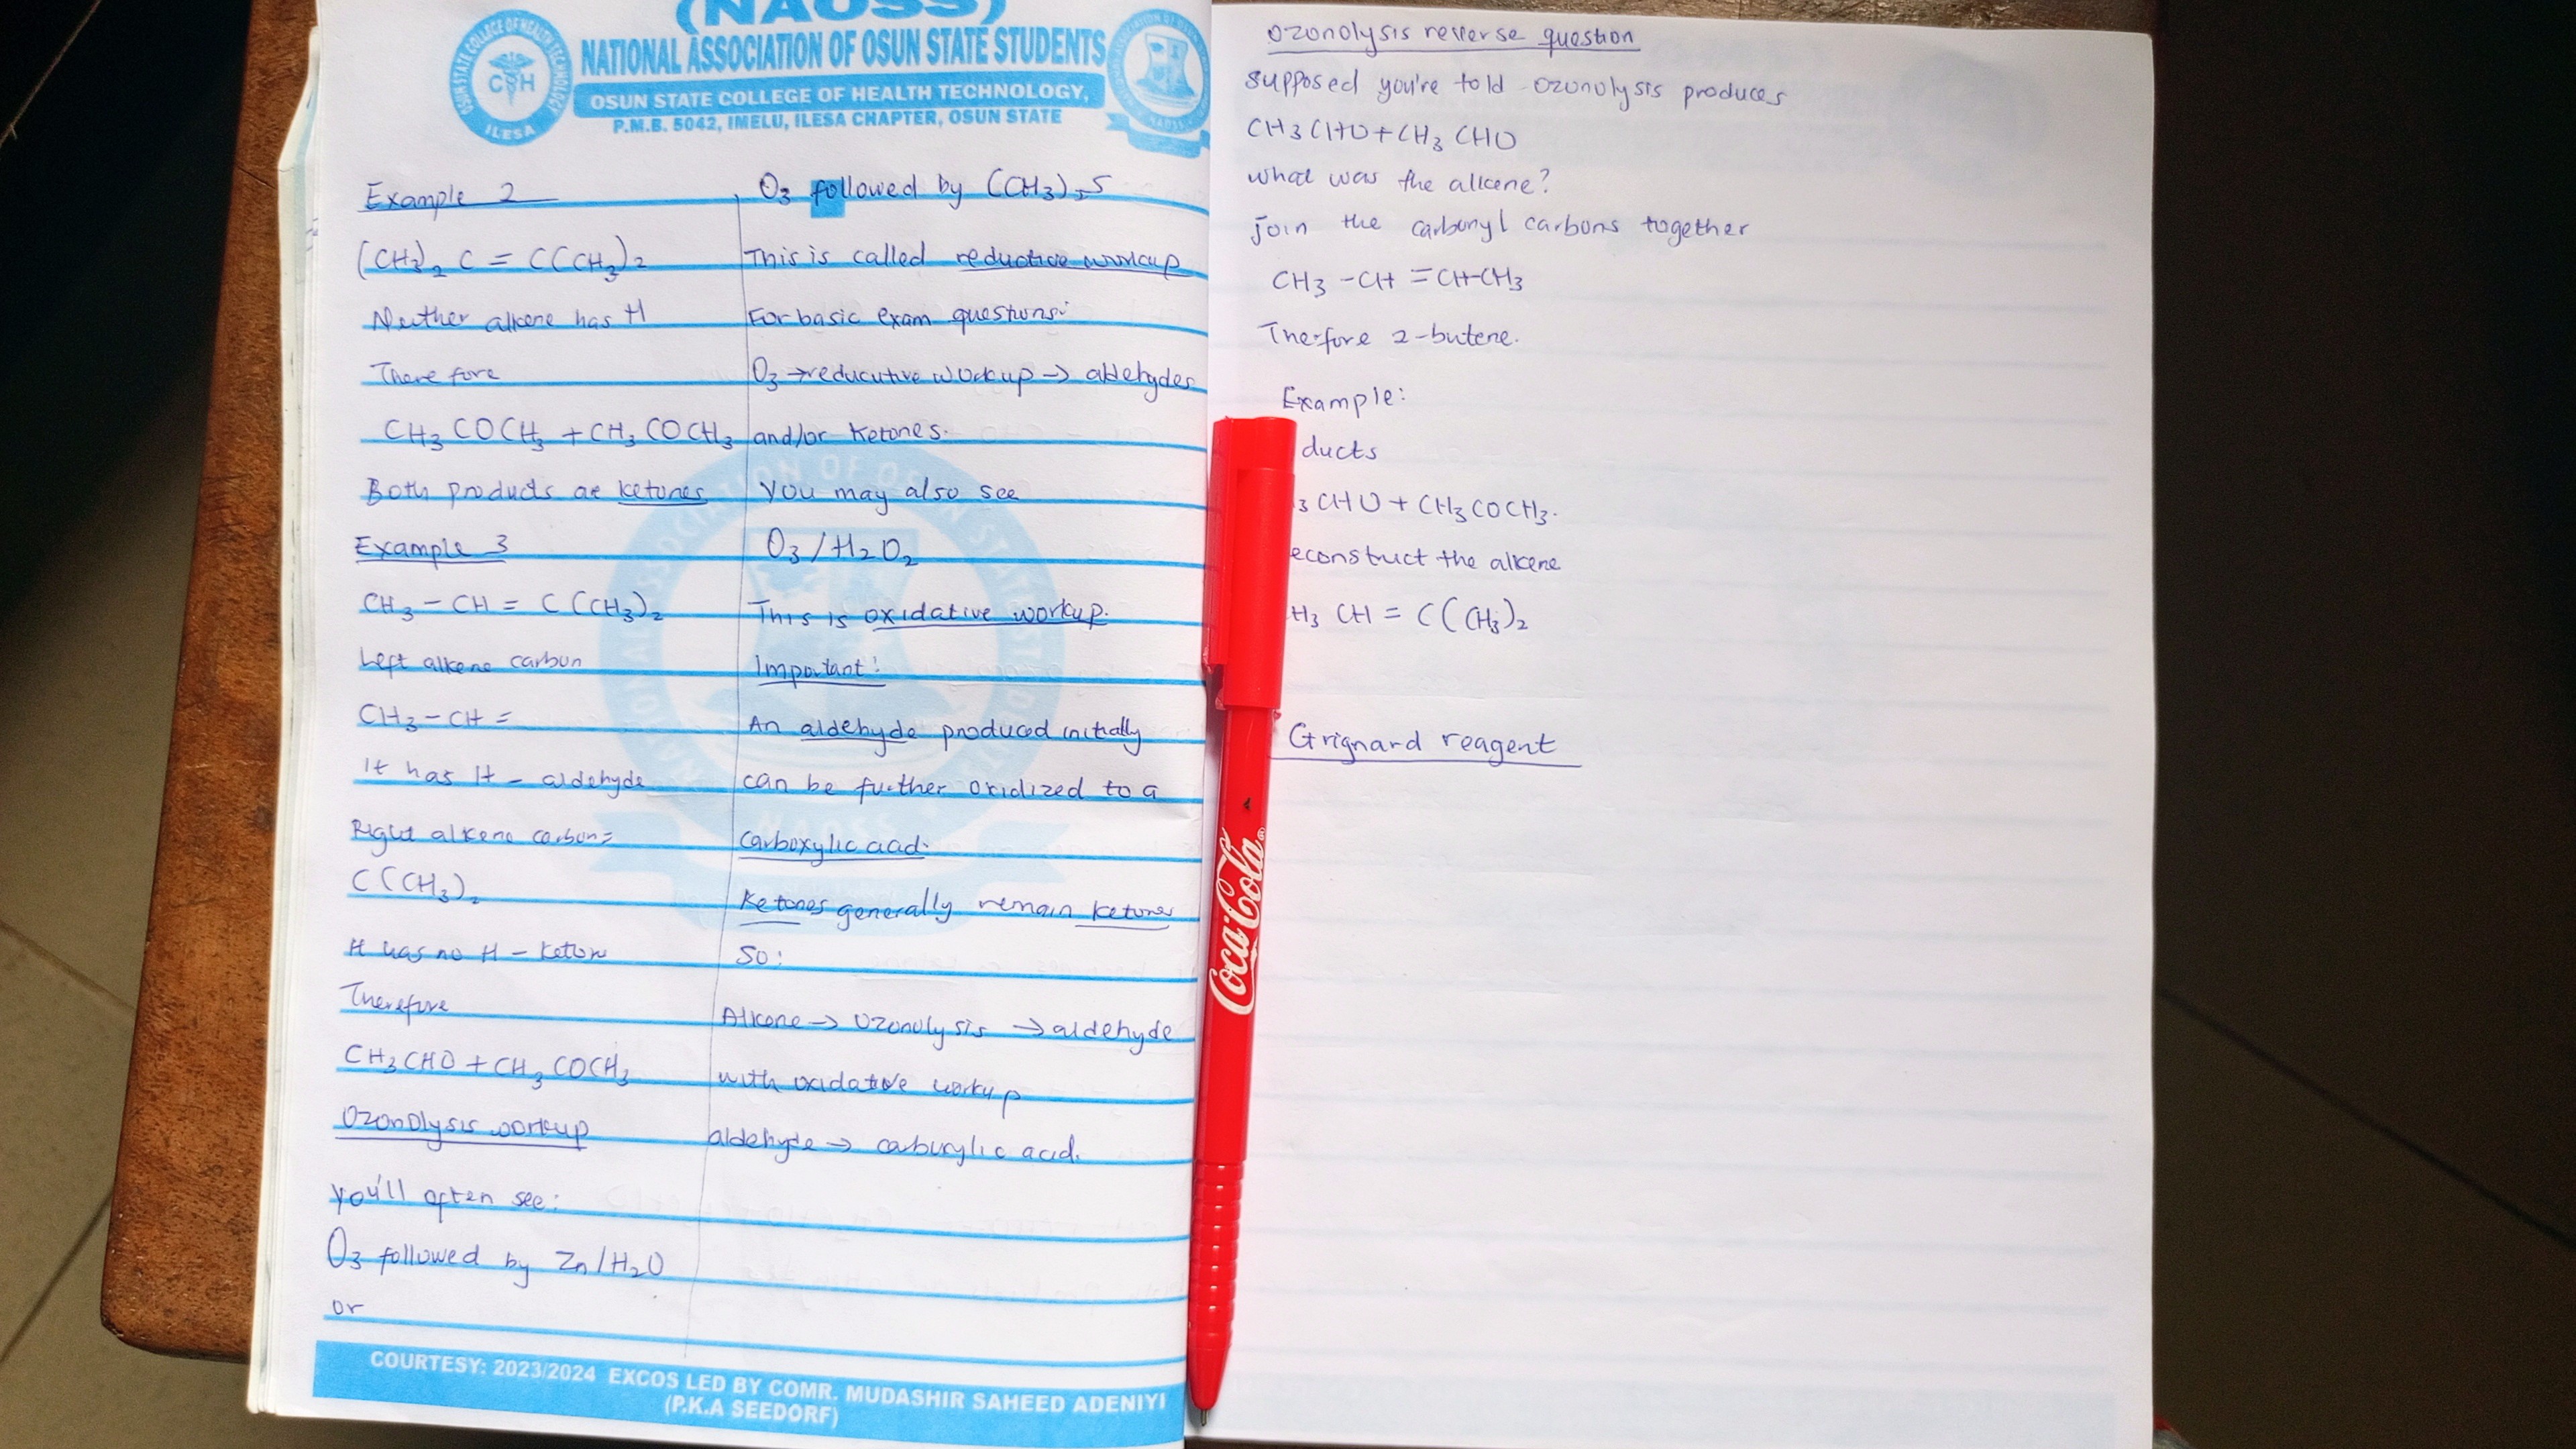 (NAOSS)
NATIONAL ASSOCIATION OF OSUN STATE STUDENTS
OSUN STATE COLLEGE OF HEALTH TECHNOLOGY,
P.M.B. 5042, IMELU, ILESA CHAPTER, OSUN STATE
OSUN STATE COLLEGE OF HEALTH TECHNOLOGY
ILESA
Example 2
(CH3)2 C = C(CH3)2
Neither alkene has H
Therefore
CH3 COCH3 + CH3 COCH3
Both products are ketones
Example 3
CH3 - CH = C(CH3)2
Left alkene carbon
CH3 - CH =
It has H - aldehyde
Right alkene carbon =
C(CH3)2
It has no H - Ketone
Therefore
CH3CHO + CH3COCH3
Ozonolysis workup
you'll often see:
O3 followed by Zn/H2O
or
O3 followed by (CH3)2S
This is called reductive workup
For basic exam questions:
O3 → reducutive workup → aldehydes
and/or Ketones.
You may also see
O3/H2O2
This is oxidative workup.
Important:
An aldehyde produced initially
can be further oxidized to a
Carboxylic acid.
Ketones generally remain ketones
So:
Alkene → Ozonolysis → aldehyde
with oxidative workup
aldehyde → carboxylic acid.
COURTESY: 2023/2024 EXCOS LED BY COMR. MUDASHIR SAHEED ADENIYI
(P.K.A SEEDORF)
Ozonolysis reverse question
Supposed you're told ozonolysis produces
CH3CHO + CH3 CHO
What was the alkene?
Join the carbonyl carbons together
CH3 - CH = CH-CH3
Therefore 2-butene.
Example:
ducts
3 CHO + CH3COCH3.
econstruct the alkene
H3 CH = C(CH3)2
Grignard reagent
Coca-Cola